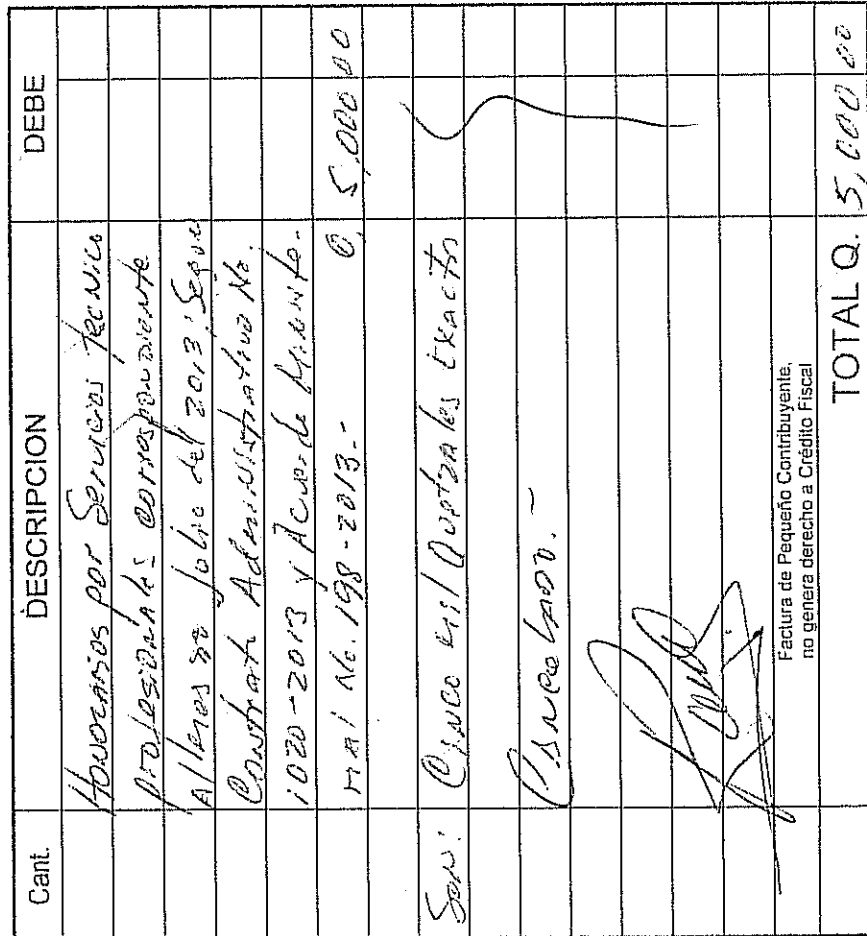 Cant. DESCRIPCION DEBE
Honorarios por Servicios Tecnico
profesionales correspondiente
Al Mes de Julio del 2013. Segun
Contrato Administrativo No.
1020-2013 y Acuerdo Ministe-
rial No. 198-2013.- Q. 5,000 00
Son: Cinco Mil Quetzales Exactos
Cancelado.-
Factura de Pequeño Contribuyente,
no genera derecho a Crédito Fiscal
TOTAL Q. 5,000 00